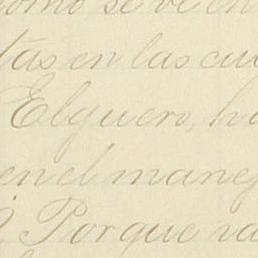 como se ve en
tas en las cu
Elguero, h
en el manej
Porque va